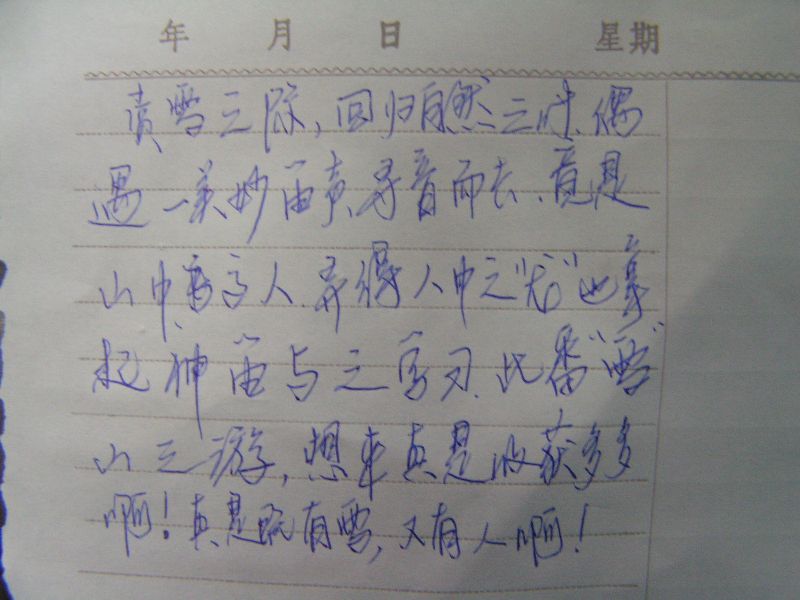 年 月 日 星期
赏雪之际,回归自然之时,偶
遇一美妙笛声,寻音而去,竟是
山中高人,弄得人中之"龙"也拿
起神笛与之学习,此番"雪"
山之游,想来真是收获多多
啊!真是既有雪,又有人啊!